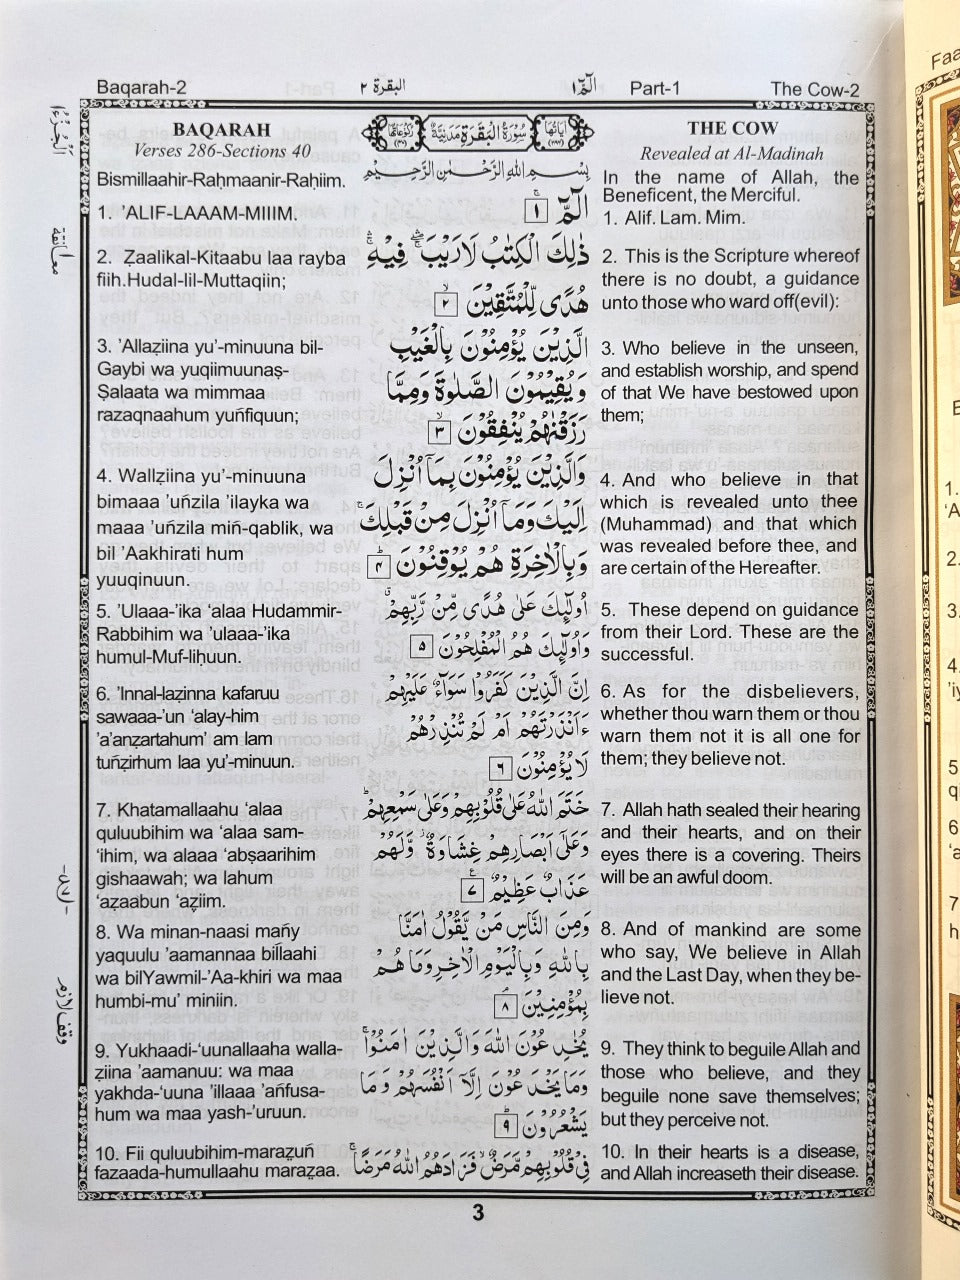 Baqarah-2 البقرة ٢ الٓمّٓ ١ Part-1 The Cow-2
BAQARAH
Verses 286-Sections 40
Bismillaahir-Raḥmaanir-Raḥiim.
1. ’ALIF-LAAAM-MIIIM.
2. Ẓaalikal-Kitaabu laa rayba
fiih.Hudal-lil-Muttaqiin;
3. ’Allaẓiina yu’-minuuna bil-
Gaybi wa yuqiimuunaṣ-
Ṣalaata wa mimmaa
razaqnaahum yuñfiquun;
4. Wallẓiina yu’-minuuna
bimaaa ’uñzila ’ilayka wa
maaa ’uñzila miñ-qablik, wa
bil ’Aakhirati hum
yuuqinuun.
5. ’Ulaaa-’ika ‘alaa Hudammir-
Rabbihim wa ’ulaaa-’ika
humul-Muf-liḥuun.
6. ’Innal-laẓinna kafaruu
sawaaa-’un ‘alay-him
’a’anẓartahum’ am lam
tuñẓirhum laa yu’-minuun.
7. Khatamallaahu ‘alaa
quluubihim wa ‘alaa sam-
‘ihim, wa alaaa ‘abṣaarihim
gishaawah; wa lahum
‘azaabun ‘aẓiim.
8. Wa minan-naasi mañy
yaquulu ’aamannaa billaahi
wa bilYawmil-’Aa-khiri wa maa
humbi-mu’ miniin.
9. Yukhaadi-‘uunallaaha walla-
ẓiina ’aamanuu: wa maa
yakhda-‘uuna ’illaaa ’añfusa-
hum wa maa yash-’uruun.
10. Fii quluubihim-maraẓuñ
fazaada-humullaahu maraẓaa.
اٰيَاتُهَا ٢٨٦ سُوْرَةُ الْبَقَرَةِ مَدَنِيَّةٌ رُكُوْعَاتُهَا ٤٠
بِسْمِ اللهِ الرَّحْمٰنِ الرَّحِيْمِ
الٓمّٓ ۚ ١
ذٰلِكَ الْكِتٰبُ لَا رَيْبَ ۛ فِيْهِ ۛ
هُدًى لِّلْمُتَّقِيْنَ ۙ ٢
الَّذِيْنَ يُؤْمِنُوْنَ بِالْغَيْبِ
وَيُقِيْمُوْنَ الصَّلٰوةَ وَمِمَّا
رَزَقْنٰهُمْ يُنْفِقُوْنَ ۙ ٣
وَالَّذِيْنَ يُؤْمِنُوْنَ بِمَآ اُنْزِلَ
اِلَيْكَ وَمَآ اُنْزِلَ مِنْ قَبْلِكَ ۚ
وَبِالْاٰخِرَةِ هُمْ يُوْقِنُوْنَ ٤
اُولٰٓئِكَ عَلٰى هُدًى مِّنْ رَّبِّهِمْ ۗ
وَاُولٰٓئِكَ هُمُ الْمُفْلِحُوْنَ ٥
اِنَّ الَّذِيْنَ كَفَرُوْا سَوَآءٌ عَلَيْهِمْ
ءَاَنْذَرْتَهُمْ اَمْ لَمْ تُنْذِرْهُمْ
لَا يُؤْمِنُوْنَ ٦
خَتَمَ اللهُ عَلٰى قُلُوْبِهِمْ وَعَلٰى سَمْعِهِمْ ؕ
وَعَلٰٓى اَبْصَارِهِمْ غِشَاوَةٌ ؗ وَّلَهُمْ
عَذَابٌ عَظِيْمٌ ٧
وَمِنَ النَّاسِ مَنْ يَّقُوْلُ اٰمَنَّا
بِاللهِ وَبِالْيَوْمِ الْاٰخِرِ وَمَا هُمْ
بِمُؤْمِنِيْنَ ۘ ٨
يُخٰدِعُوْنَ اللهَ وَالَّذِيْنَ اٰمَنُوْا ۚ
وَمَا يَخْدَعُوْنَ اِلَّآ اَنْفُسَهُمْ وَمَا
يَشْعُرُوْنَ ؕ ٩
فِيْ قُلُوْبِهِمْ مَّرَضٌ ۙ فَزَادَهُمُ اللهُ مَرَضًا ۚ
THE COW
Revealed at Al-Madinah
In the name of Allah, the
Beneficent, the Merciful.
1. Alif. Lam. Mim.
2. This is the Scripture whereof
there is no doubt, a guidance
unto those who ward off(evil):
3. Who believe in the unseen,
and establish worship, and spend
of that We have bestowed upon
them;
4. And who believe in that
which is revealed unto thee
(Muhammad) and that which
was revealed before thee, and
are certain of the Hereafter.
5. These depend on guidance
from their Lord. These are the
successful.
6. As for the disbelievers,
whether thou warn them or thou
warn them not it is all one for
them; they believe not.
7. Allah hath sealed their hearing
and their hearts, and on their
eyes there is a covering. Theirs
will be an awful doom.
8. And of mankind are some
who say, We believe in Allah
and the Last Day, when they be-
lieve not.
9. They think to beguile Allah and
those who believe, and they
beguile none save themselves;
but they perceive not.
10. In their hearts is a disease,
and Allah increaseth their disease.
معانقة
وقف لازم
3